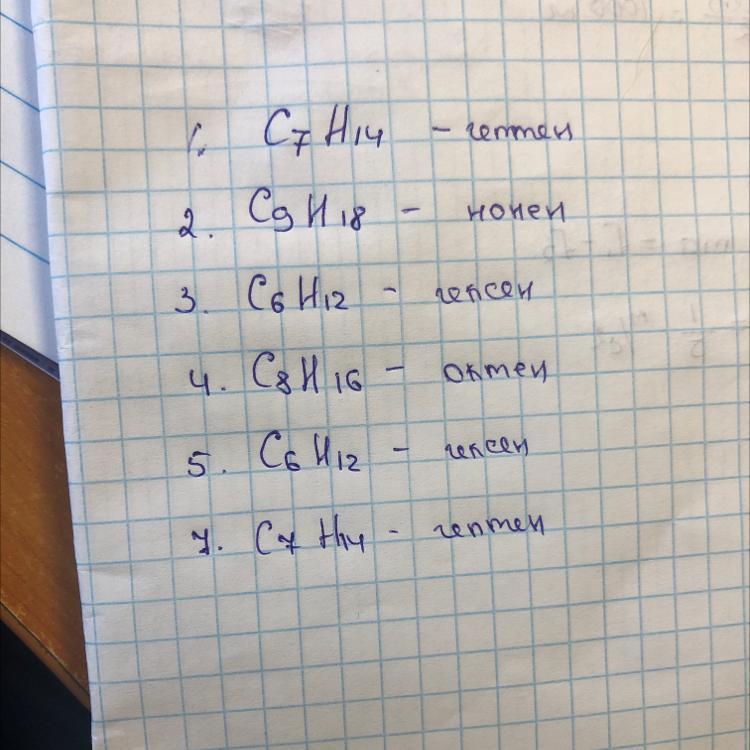 1. C7H14 - гептен
2. C9H18 - нонен
3. C6H12 - гексен
4. C8H16 - октен
5. C6H12 - гексен
7. C7H14 - гептен